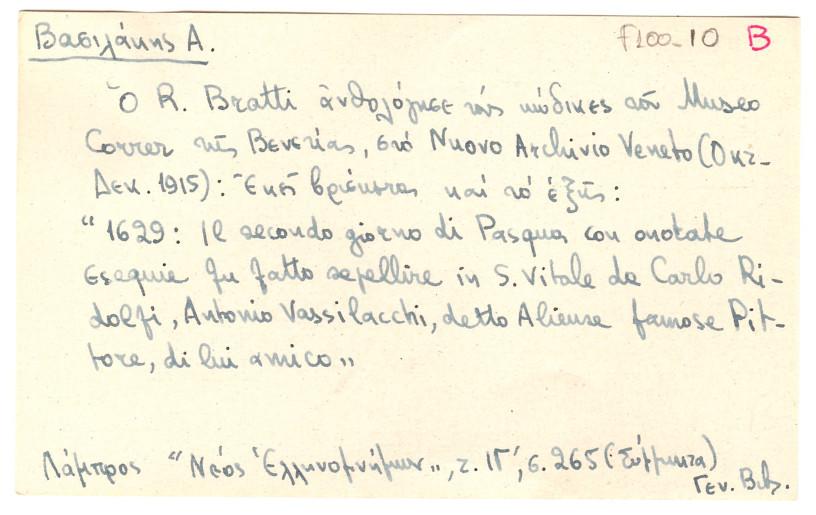 Βασιλάκης Α. F100-10 B
Ὁ R. Bratti ἀνθολόγησε τούς κώδικες τοῦ Museo
Correr τῆς Βενετίας, στό Nuovo Archivio Veneto (Οκτ-
Δεκ. 1915): Ἐκεῖ βρίσκεται καί τό ἑξῆς:
“1629: Il secondo giorno di Pasqua con onotate
esequie fu fatto sepellire in S. Vitale da Carlo Ri-
dolfi, Antonio Vassilacchi, detto Aliense famose Pit-
tore, di lui amico„
Λάμπρος “Νέος Ἑλληνομνήμων„, τ. ΙΓ΄, σ. 265 (Σύμμικτα)
Γεν. Βιβ.